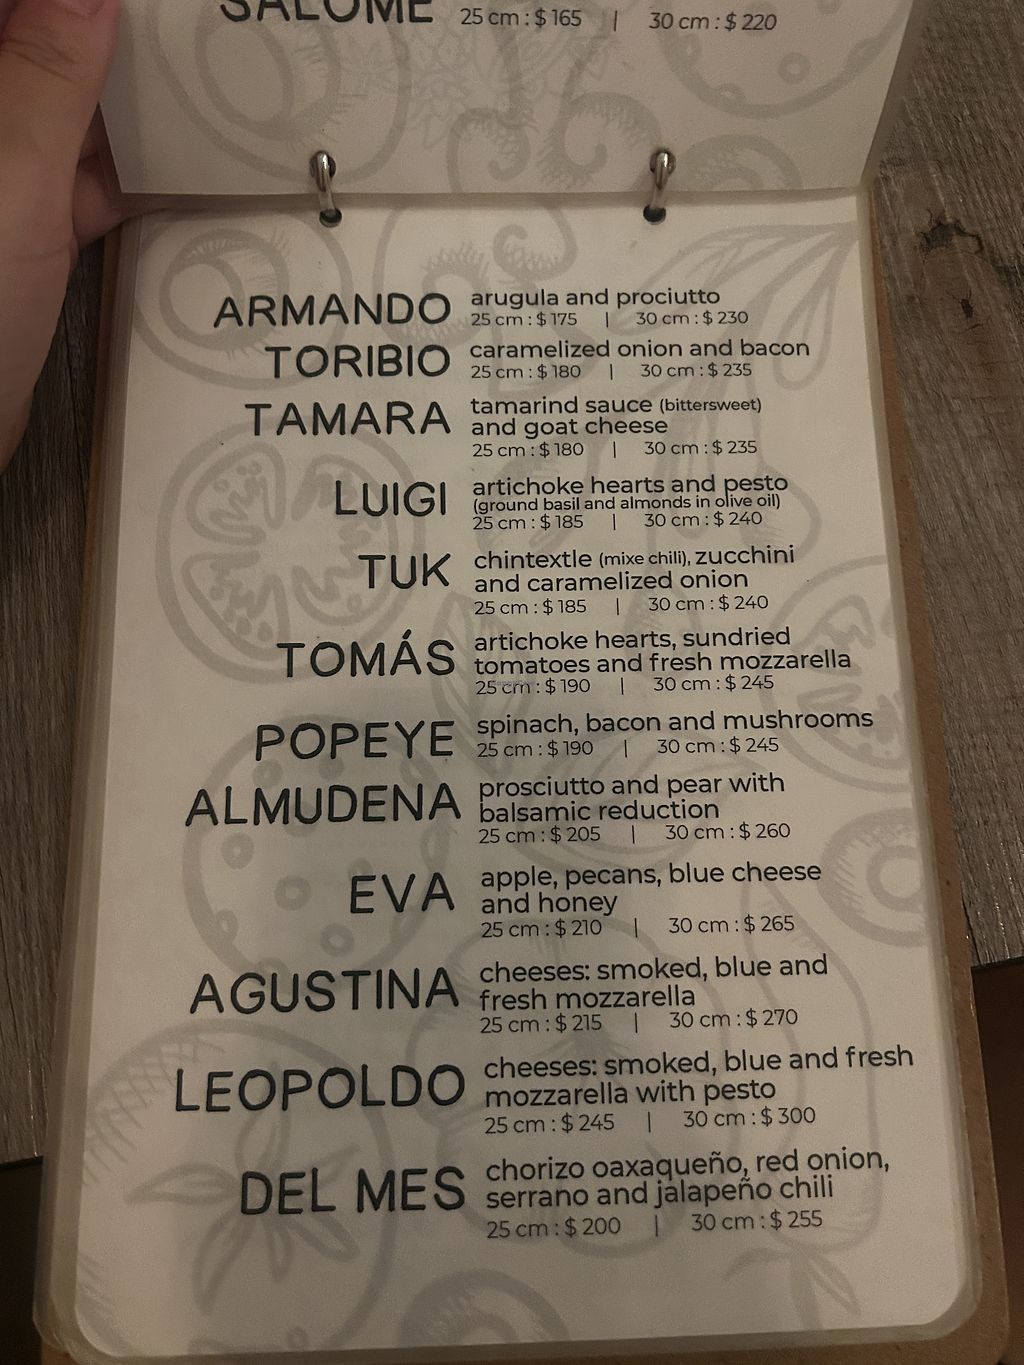 SALOMÉ 25 cm : $ 165 | 30 cm : $ 220
ARMANDO arugula and prociutto
25 cm : $ 175 | 30 cm : $ 230
TORIBIO caramelized onion and bacon
25 cm : $ 180 | 30 cm : $ 235
TAMARA tamarind sauce (bittersweet)
and goat cheese
25 cm : $ 180 | 30 cm : $ 235
LUIGI artichoke hearts and pesto
(ground basil and almonds in olive oil)
25 cm : $ 185 | 30 cm : $ 240
TUK chintextle (mixe chili), zucchini
and caramelized onion
25 cm : $ 185 | 30 cm : $ 240
TOMÁS artichoke hearts, sundried
tomatoes and fresh mozzarella
25 cm : $ 190 | 30 cm : $ 245
POPEYE spinach, bacon and mushrooms
25 cm : $ 190 | 30 cm : $ 245
ALMUDENA prosciutto and pear with
balsamic reduction
25 cm : $ 205 | 30 cm : $ 260
EVA apple, pecans, blue cheese
and honey
25 cm : $ 210 | 30 cm : $ 265
AGUSTINA cheeses: smoked, blue and
fresh mozzarella
25 cm : $ 215 | 30 cm : $ 270
LEOPOLDO cheeses: smoked, blue and fresh
mozzarella with pesto
25 cm : $ 245 | 30 cm : $ 300
DEL MES chorizo oaxaqueño, red onion,
serrano and jalapeño chili
25 cm : $ 200 | 30 cm : $ 255